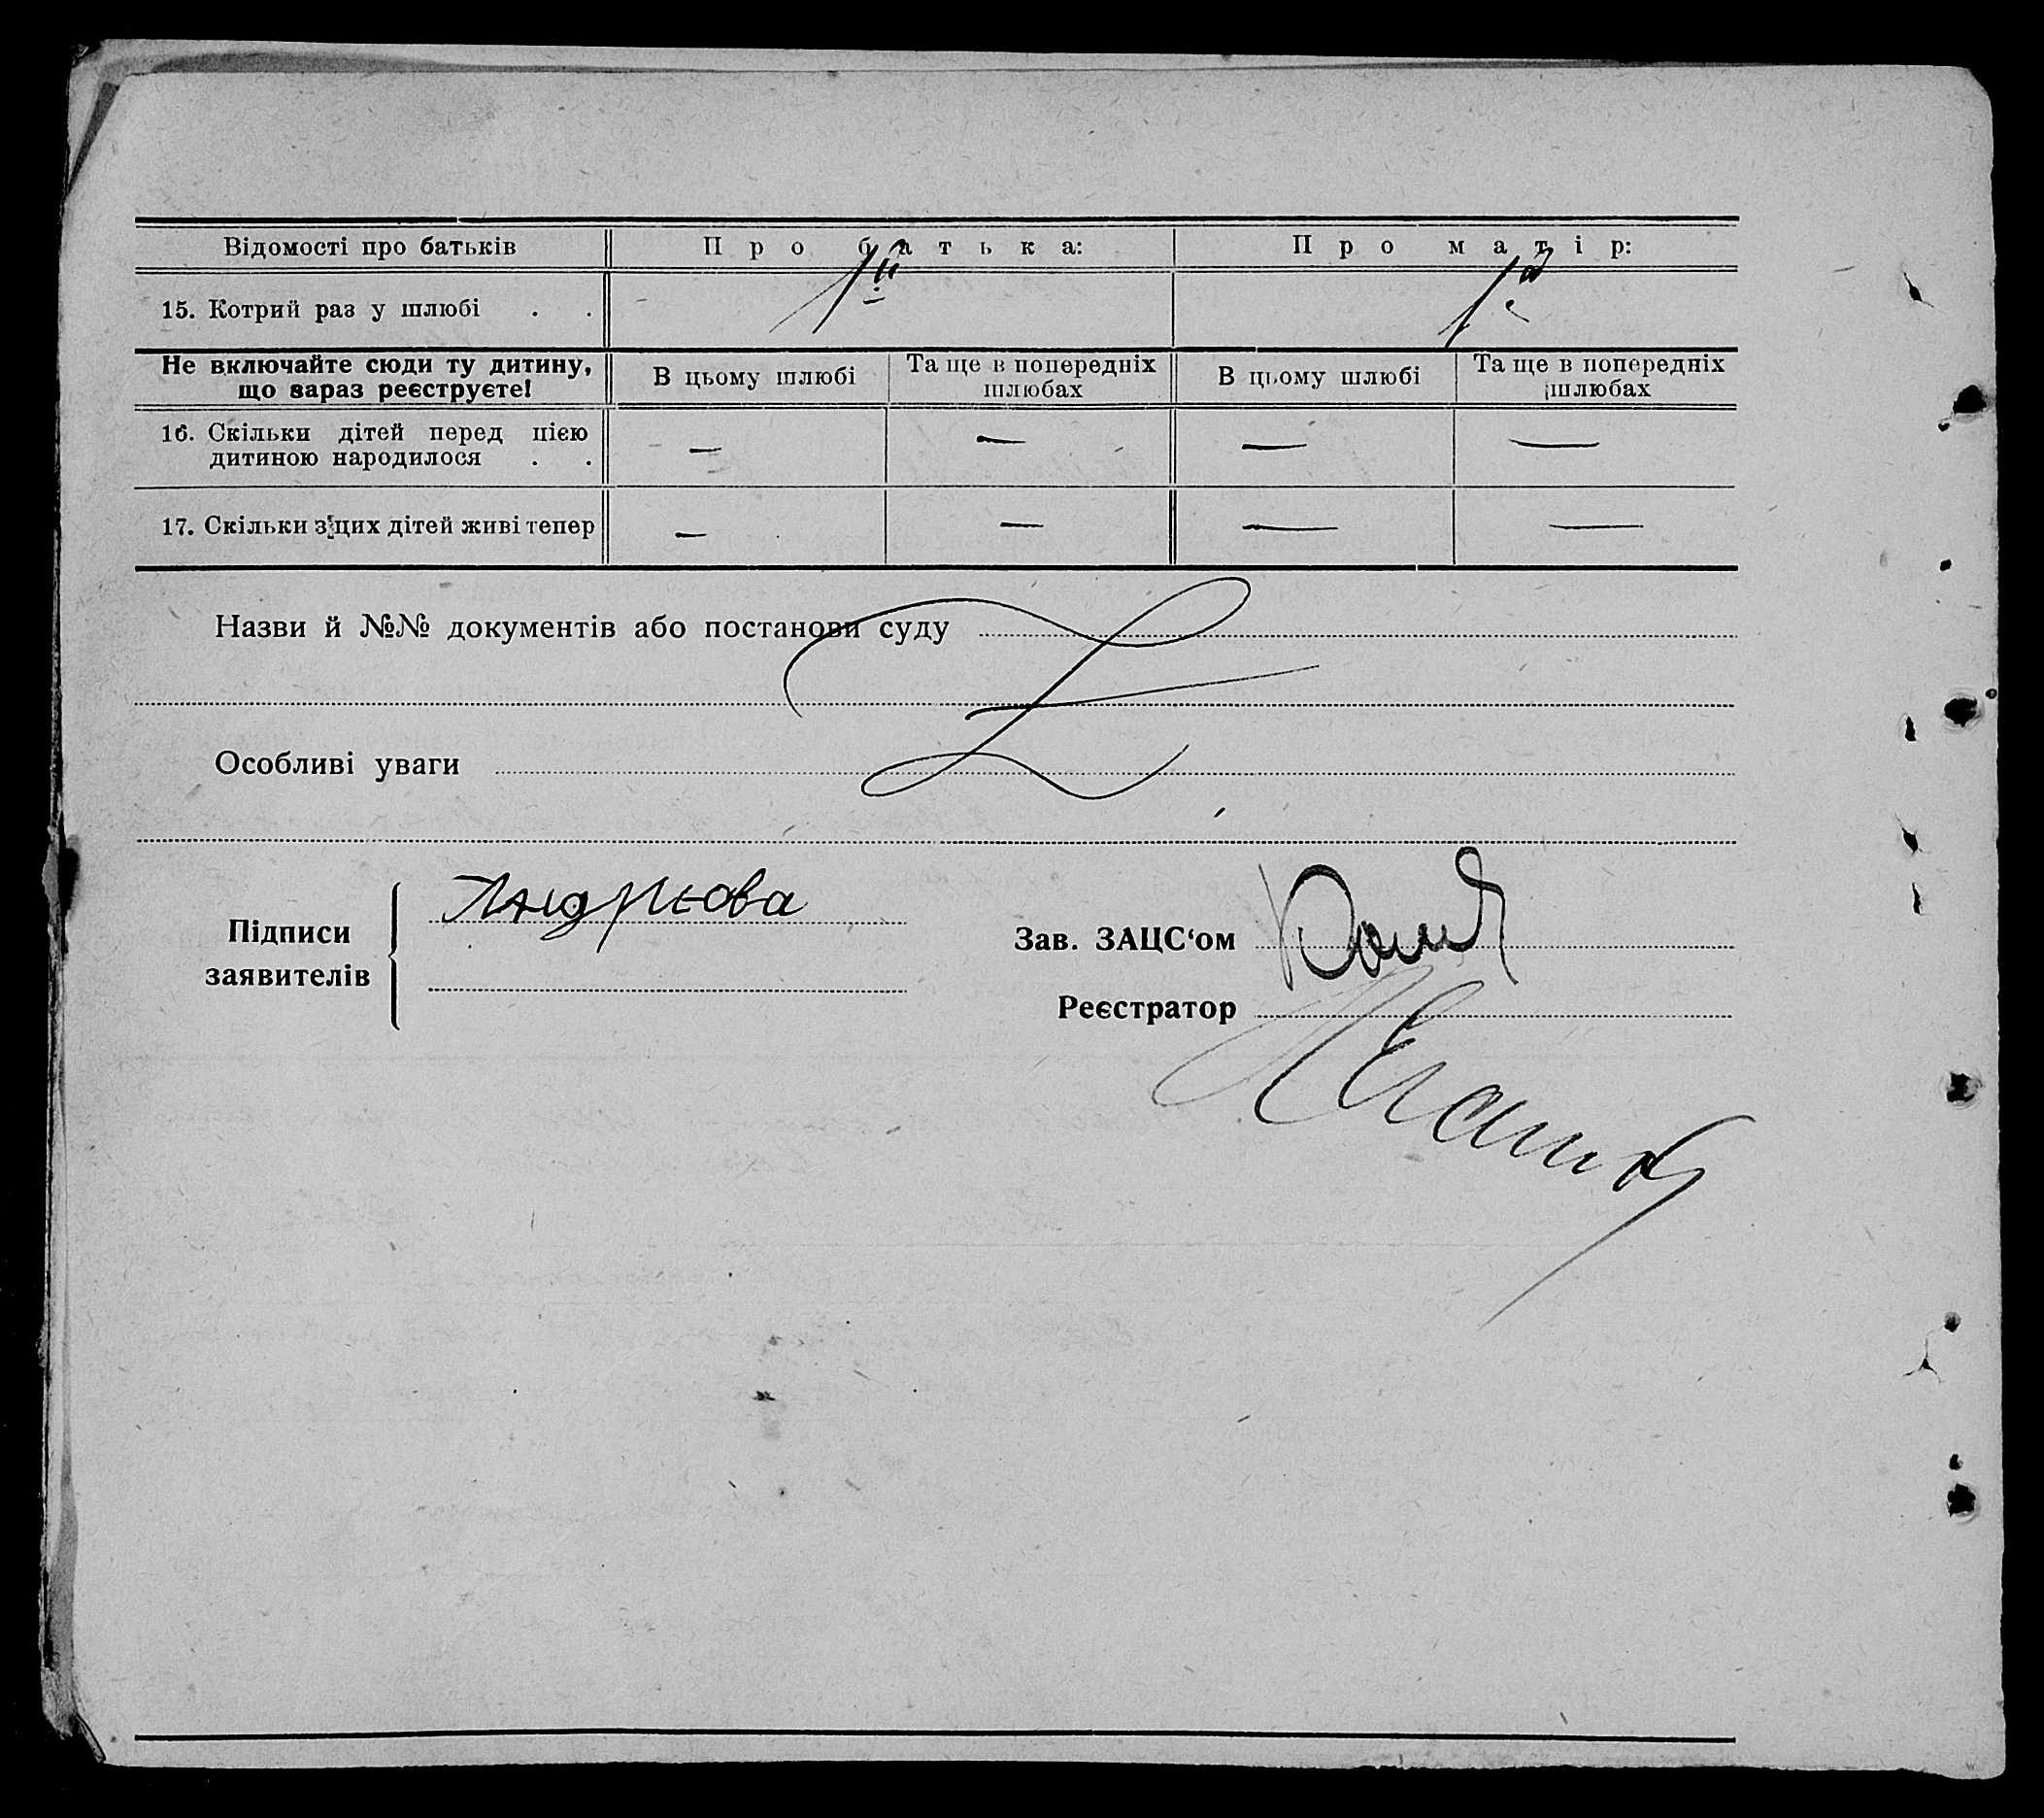 Відомості про батьків Про батька: Про матір:
15. Котрий раз у шлюбі . . 1й 1й
Не включайте сюди ту дитину, що зараз реєструєте! В цьому шлюбі Та ще в попередніх шлюбах В цьому шлюбі Та ще в попередніх шлюбах
16. Скільки дітей перед цією дитиною народилося . . — — — —
17. Скільки з цих дітей живі тепер — — — —
Назви й №№ документів або постанови суду
Особливі уваги
Підписи заявителів Андрєова
Зав. ЗАЦС‘ом
Реєстратор